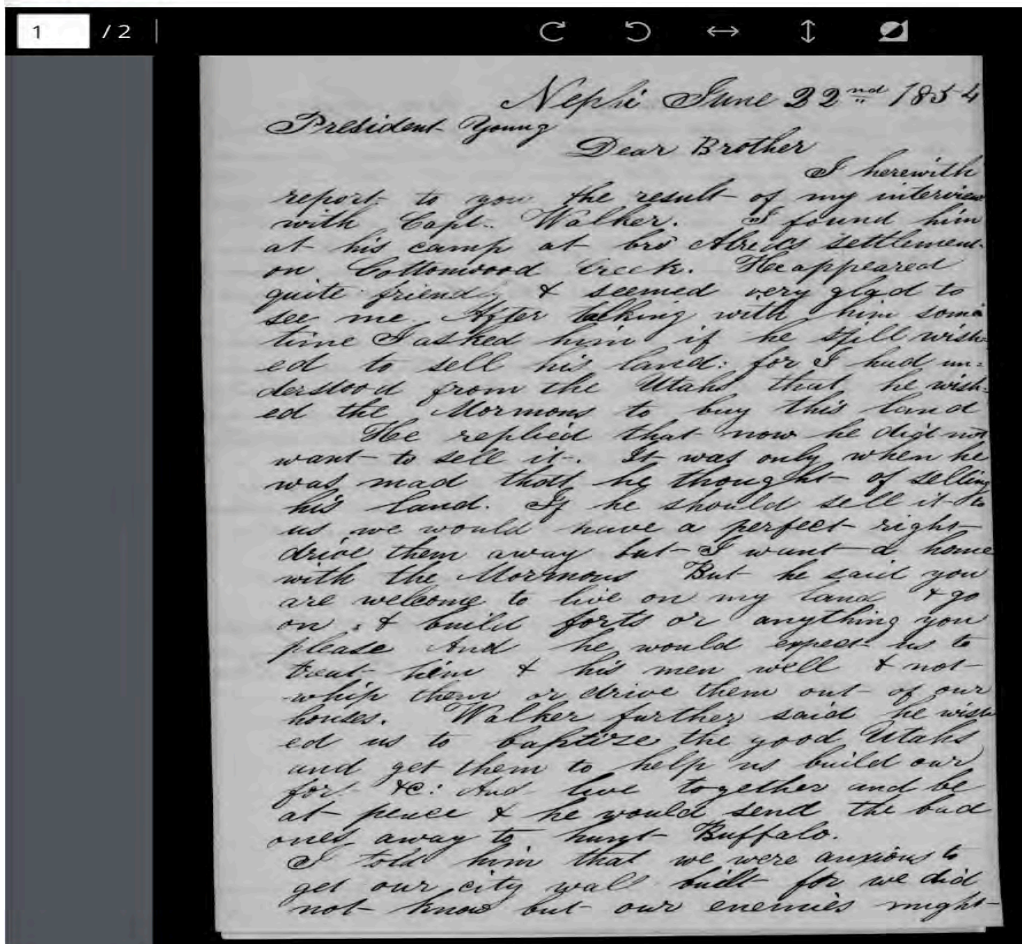 1 / 2
Nephi June 22nd 1854
President Young
Dear Brother
I herewith
report to you the result of my interview
with Capt. Walker. I found him
at his camp at bro settlement
on Cottonwood Creek. He appeared
quite friendly & seemed very glad to
see me. After talking with him some
time I asked him if he still wish
ed to sell his land: for I had un-
derstood from the Utahs that he wish-
ed the Mormons to buy this land
He replied that now he did not
want to sell it. It was only when he
was mad that he thought of selling
his land. If he should sell it to
us we would have a perfect right
drive them away but I want a home
with the Mormons But he said you
are welcome to live on my land & go
on & build forts or anything you
please And he would expect us to
treat him & his men well & not
whip them or drive them out of our
houses. Walker further said he wish
ed us to baptize the good Utahs
and get them to help us build our
fort &c: And live together and be
at peace & he would send the bad
ones away to hunt Buffalo.
I told him that we were anxious to
get our city wall built for we did
not know but our enemies might